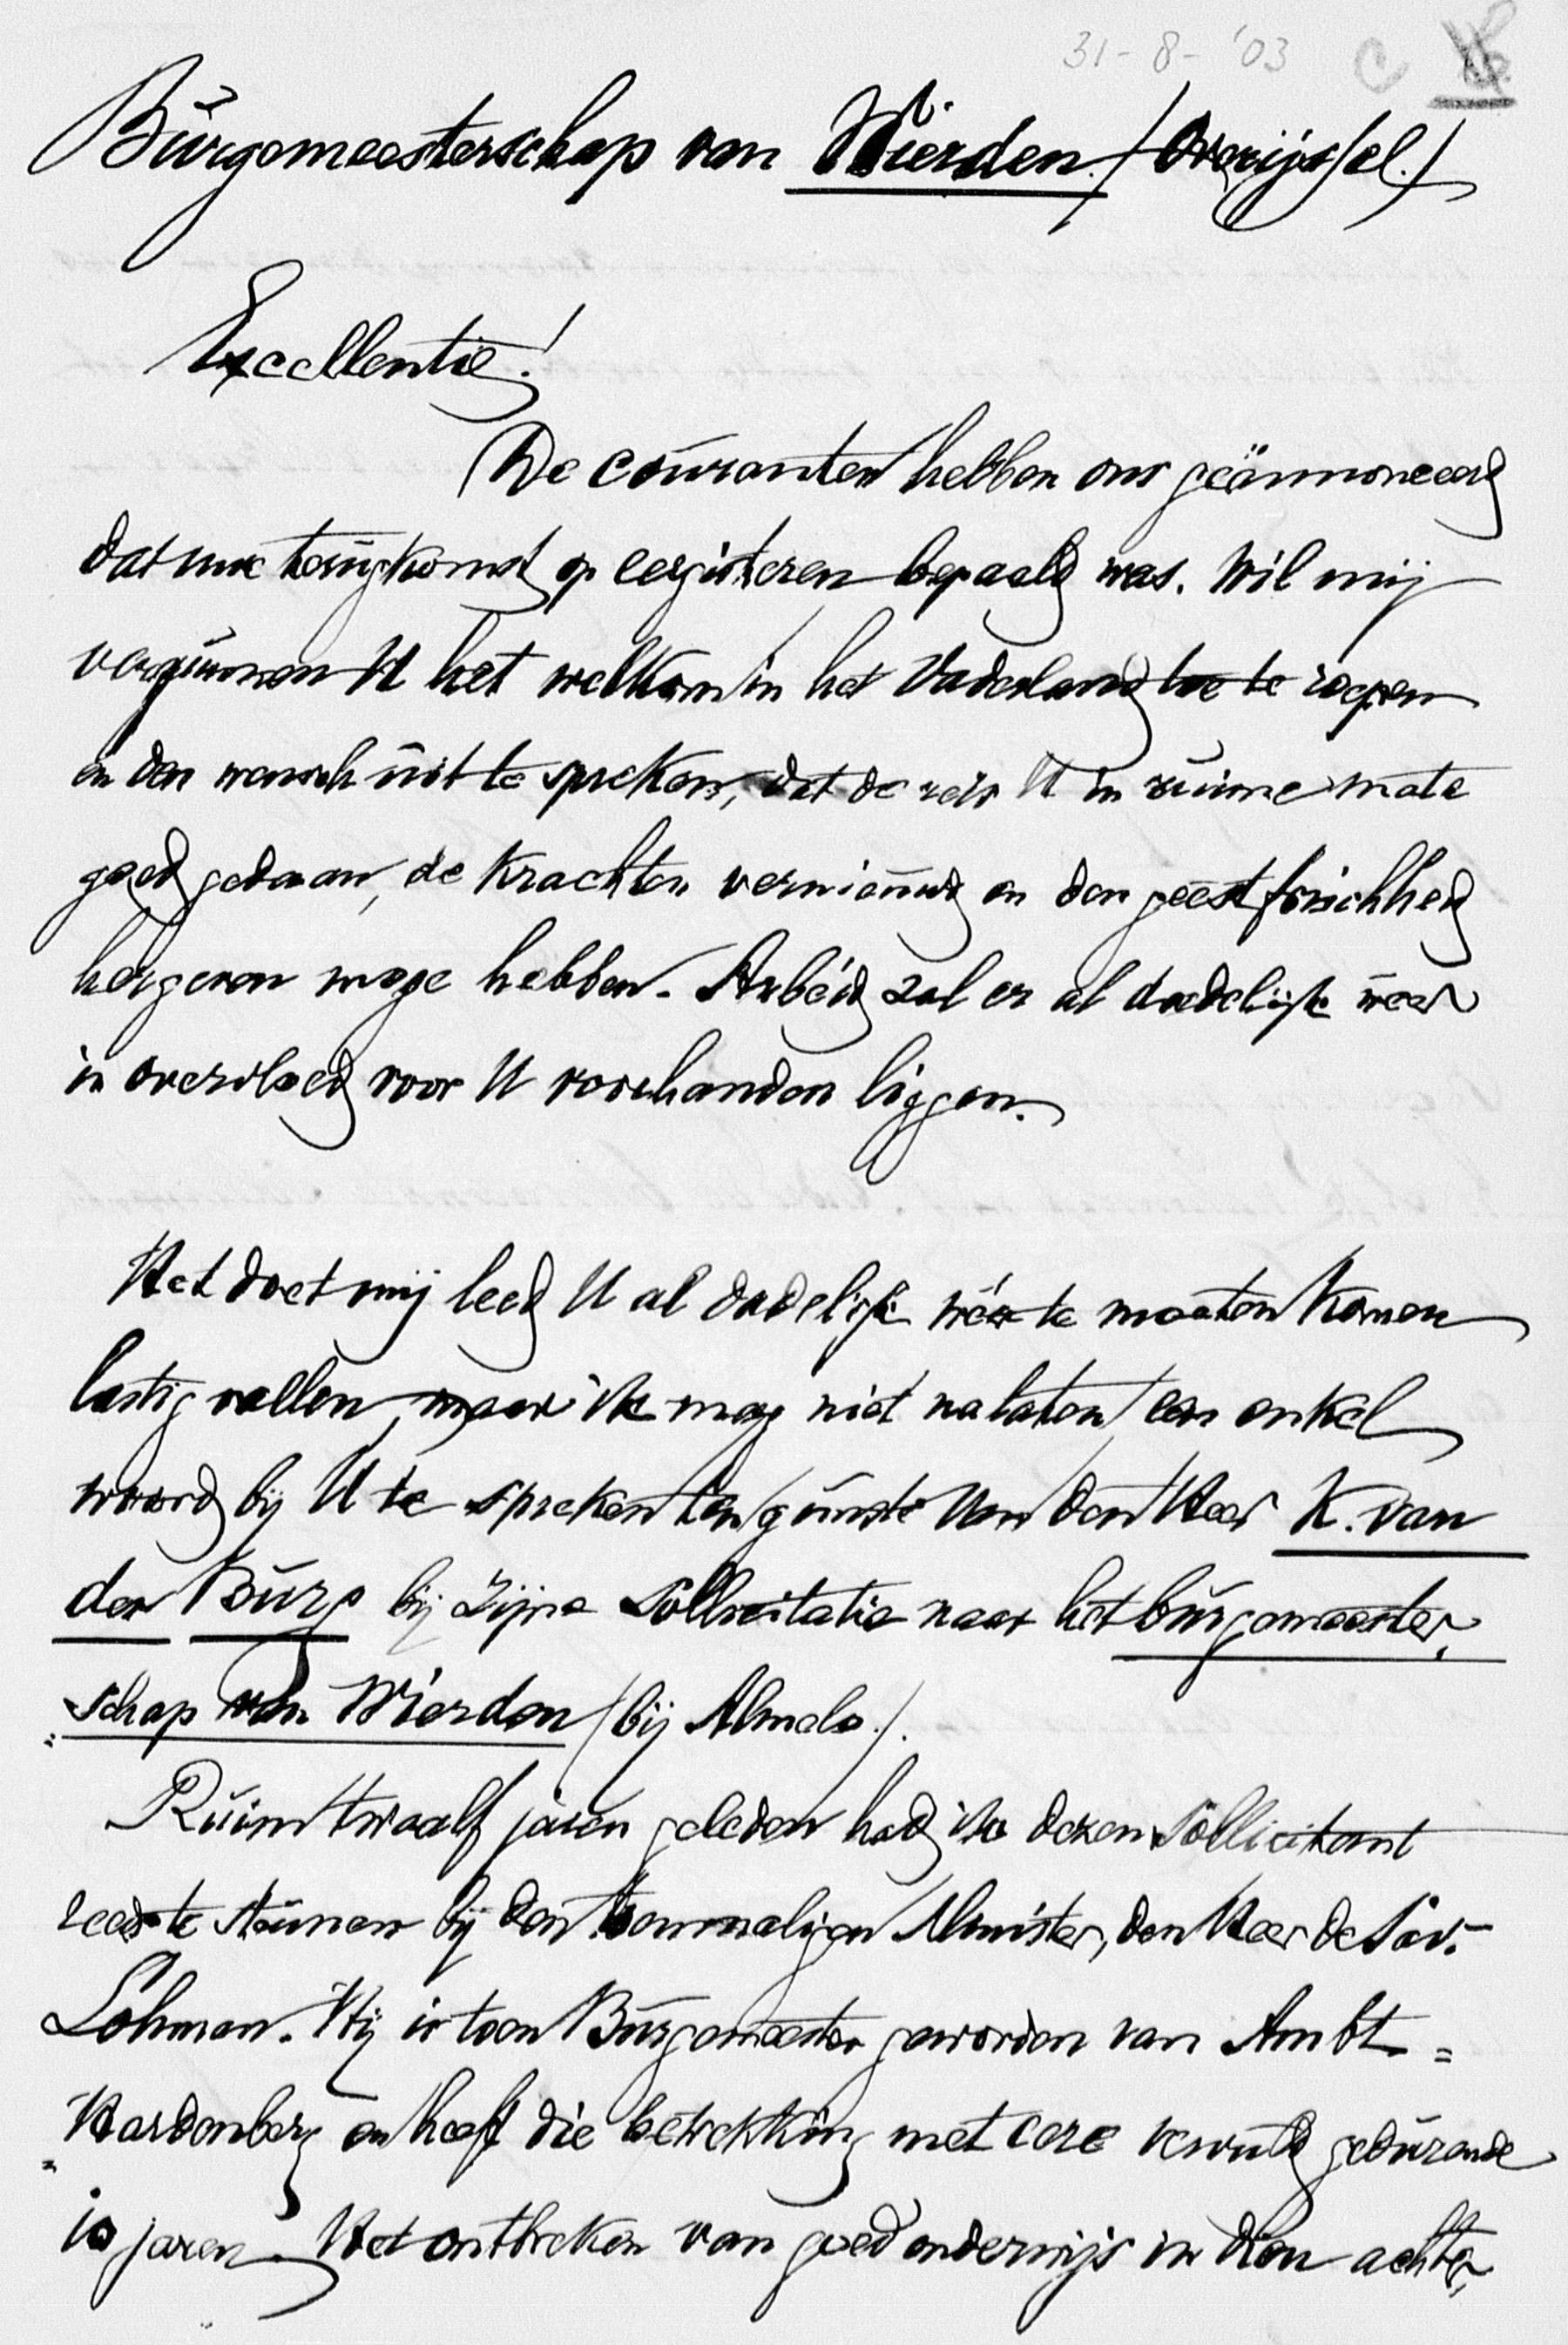 31-8-'03 C
Burgemeesterschap van Wierden (Overijssel.)
Excellentie!
De couranten hebben ons geännonceerd
dat uwe terugkomst op eergisteren bepaald was. Wil mij
vergunnen U het welkom in het Vaderland toe te roepen
en den wensch uit te spreken, dat de reis U in ruime mate
goed gedaan, de krachten vernieuwd en den geest frischheid
hergeven moge hebben. Arbeid zal er al dadelijk weer
in overvloed voor U voorhanden liggen.
Het doet mij leed U al dadelijk wéer te moeten komen
lastig vallen, maar ik mag niet nalaten een enkel
woord bij U te spreken ten gunste van den Heer K. van
der Burg bij zijne sollicitatie naar het burgemeester„
„schap van Wierden (bij Almelo.).
Ruim twaalf jaren geleden had ik dezen sollicitant
reeds te steunen bij den toenmaligen Minister, den Heer de Sav.
Lohman. Hij is toen Burgemeester geworden van Ambt=
„Hardenberg en heeft die betrekking met eere vervuld gedurende
10 jaren. Het ontbreken van goed onderwijs in dien achter„